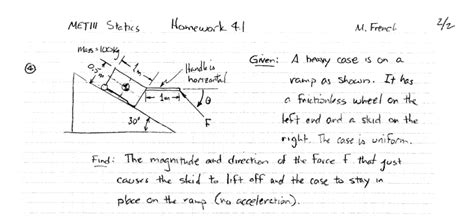 MET 111 Statics Homework 4.1 M. French 2/2
④
Mass = 100kg
0.5m
1m
Handle is
horizontal
1m
θ
F
30°
Given: A heavy case is on a
ramp as shown. It has
a frictionless wheel on the
left end and a skid on the
right. The case is uniform.
Find: The magnitude and direction of the force F that just
causes the skid to lift off and the case to stay in
place on the ramp (no acceleration).